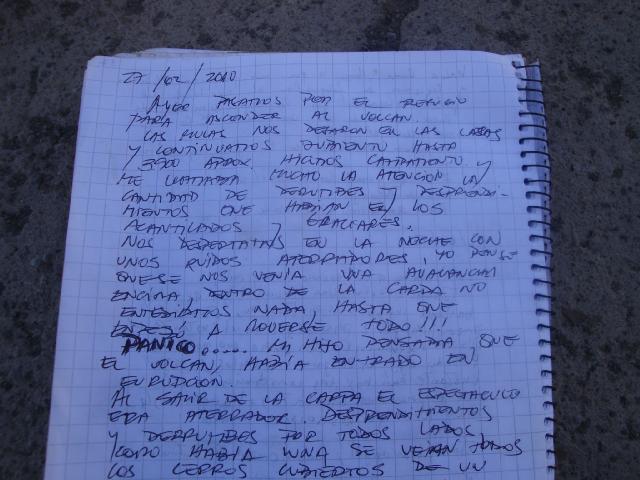 27/02/2010
AYER PASAMOS POR EL REFUGIO
PARA ASCENDER AL VOLCAN.
LAS MULAS NOS DEJARON EN LAS
Y CONTINUAMOS JUTAMENTO HASTA
3900 APROX. HICIMOS CAMPAMENTO Y
ME LLAMABA MUCHO LA ATENCION LA
CANTIDAD DE DERRUMBES Y DESPRENDI-
MIENTOS QUE HABIAN EN LOS
ACANTILADOS Y GRACIARES.
NOS DESPERTAMOS EN LA NOCHE CON
UNOS RUIDOS ATERRADORES, YO PENSE
QUE SE NOS VENIA UNA AVALANCHA
ENCIMA, DENTRO DE LA CARPA NO
ENTEDIAMOS NADA, HASTA QUE
EMPEZÓ A MOVERSE TODO!!!
PANICO..... MI HIJO PENSABA QUE
EL VOLCAN, HABÍA ENTRADO EN
EURUPCION.
AL SALIR DE LA CARPA EL ESPECTACULO
ERA ATERRADOR. DESPRENDIMIENTOS
Y DERRUMBES POR TODOS LADOS,
COMO HABÍA LUNA SE VEIAN TODOS
LOS CERROS CUBIERTOS DE UN